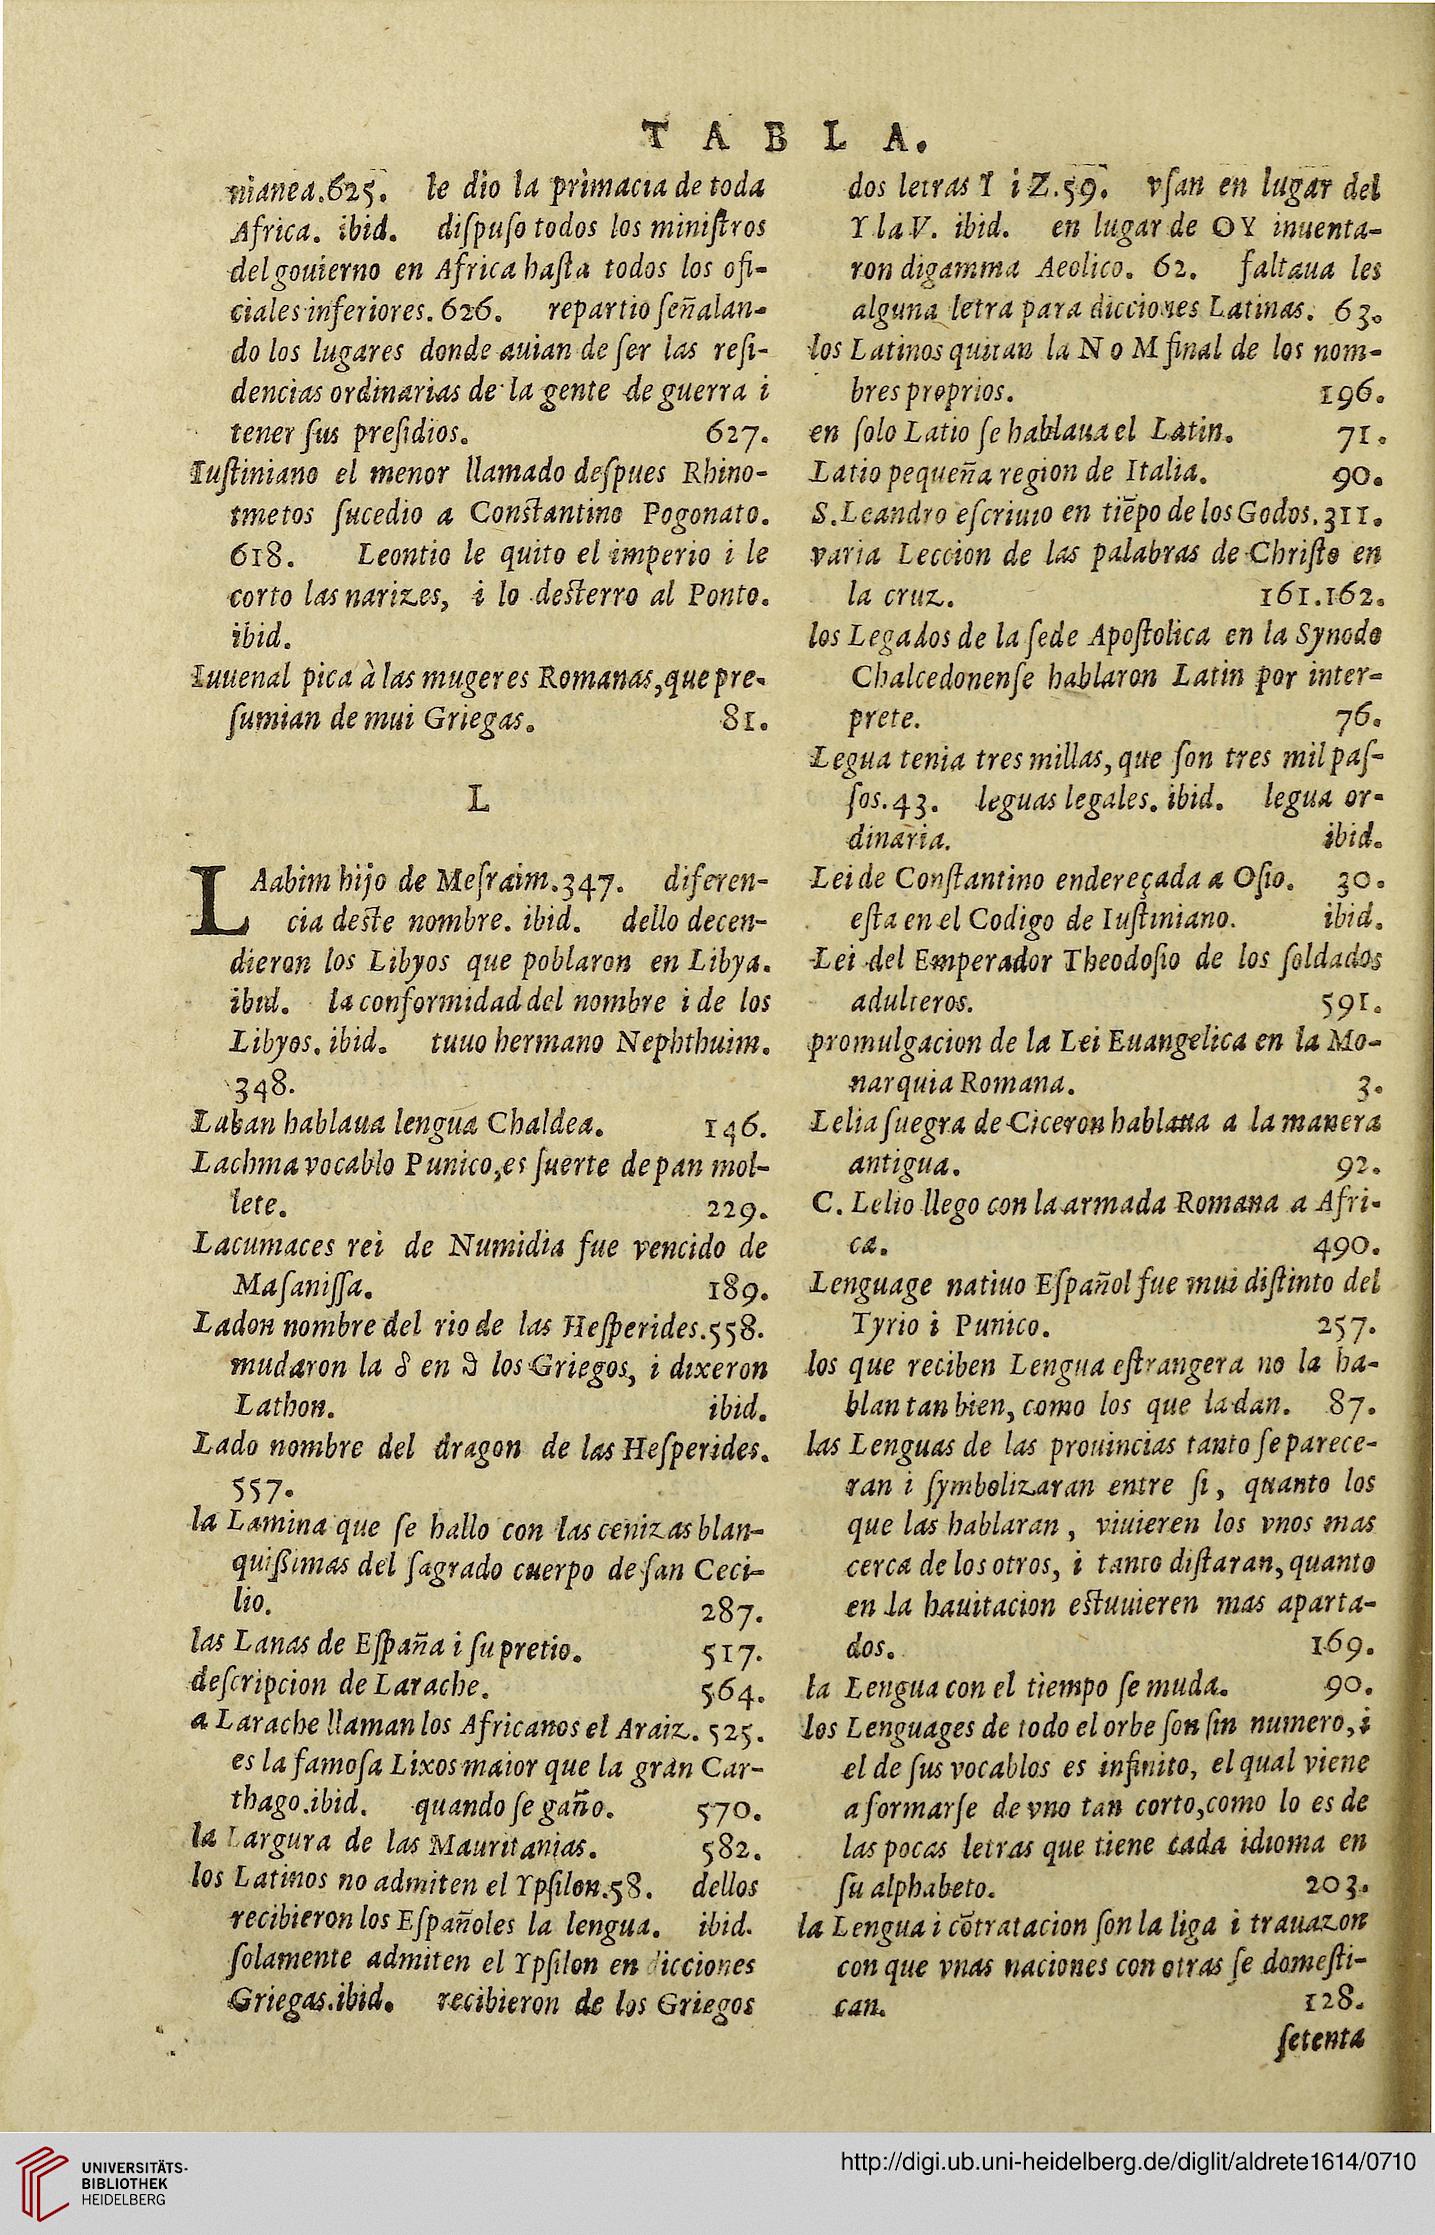 TABLA.
nianea.625. le dio la primacia de toda
Africa. ibid. diſpuſo todos los miniſtros
del gouierno en Africa haſta todos los ofi-
ciales inferiores. 626. repartio ſeñalan-
do los lugares donde auian de ſer las reſi-
dencias ordinarias de la gente de guerra i
tener ſus preſidios. 627.
Iuſtiniano el menor llamado deſpues Rhino-
tmetos ſucedio a Conſtantino Pogonato.
618. Leontio le quito el imperio i le
corto las narizes, i lo deſterro al Ponto.
ibid.
Iuuenal pica à las mugeres Romanas, que pre-
ſumian de mui Griegas. 81.
L
LAabim hijo de Meſraim.347. diferen-
cia deſte nombre. ibid. dello decen-
dieron los Libyos que poblaron en Libya.
ibid. la conformidad del nombre i de los
Libyos. ibid. tuuo hermano Nephthuim.
348.
Laban hablaua lengua Chaldea. 146.
Lachma vocablo Punico, es ſuerte de pan mol-
lete. 229.
Lacumaces rei de Numidia fue vencido de
Maſaniſſa. 189.
Ladon nombre del rio de las Heſperides.558.
mudaron la δ en ϑ los Griegos, i dixeron
Lathon. ibid.
Lado nombre del dragon de las Heſperides.
557.
la Lamina que ſe hallo con las cenizas blan-
quißimas del ſagrado cuerpo de ſan Ceci-
lio. 287.
las Lanas de Eſpaña i ſu pretio. 517.
deſcripcion de Larache. 564.
a Larache llaman los Africanos el Araiz. 525.
es la famoſa Lixos maior que la gran Car-
thago.ibid. quando ſe gaño. 570.
la Largura de las Mauritanias. 582.
los Latinos no admiten el Ypſilon.58. dellos
recibieron los Eſpañoles la lengua. ibid.
ſolamente admiten el Ypſilon en dicciones
Griegas.ibid. recibieron de los Griegos
dos letras Y i Z.59. vſan en lugar del
Y la V. ibid. en lugar de OY inuenta-
ron digamma Aeolico. 62. faltaua les
alguna letra para dicciones Latinas. 63.
los Latinos quitan la N o M final de los nom-
bres proprios. 196.
en ſolo Latio ſe hablaua el Latin. 71.
Latio pequeña region de Italia. 90.
S.Leandro eſcriuio en tiēpo de los Godos.311.
varia Leccion de las palabras de Chriſto en
la cruz. 161.162.
los Legados de la ſede Apoſtolica en la Synodo
Chalcedonenſe hablaron Latin por inter-
prete. 76.
Legua tenia tres millas, que ſon tres mil paſ-
ſos.43. leguas legales. ibid. legua or-
dinaria. ibid.
Lei de Conſtantino endereçada a Oſio. 30.
eſta en el Codigo de Iuſtiniano. ibid.
Lei del Emperador Theodoſio de los ſoldados
adulteros. 591.
promulgacion de la Lei Euangelica en la Mo-
narquia Romana. 3.
Lelia ſuegra de Ciceron hablaua a la manera
antigua. 92.
C. Lelio llego con la armada Romana a Afri-
ca. 490.
Lenguage natiuo Eſpañol fue mui diſtinto del
Tyrio i Punico. 257.
los que reciben Lengua eſtrangera no la ha-
blan tan bien, como los que la dan. 87.
las Lenguas de las prouincias tanto ſe parece-
ran i ſymbolizaran entre ſi, quanto los
que las hablaran, viuieren los vnos mas
cerca de los otros, i tanto diſtaran, quanto
en la hauitacion eſtuuieren mas aparta-
dos. 169.
la Lengua con el tiempo ſe muda. 90.
los Lenguages de todo el orbe ſon ſin numero, i
el de ſus vocablos es infinito, el qual viene
a formarſe de vno tan corto, como lo es de
las pocas letras que tiene cada idioma en
ſu alphabeto. 203.
la Lengua i cõtratacion ſon la liga i trauazon
con que vnas naciones con otras ſe domeſti-
can. 128.
ſetenta
UNIVERSITÄTS-
BIBLIOTHEK
HEIDELBERG
http://digi.ub.uni-heidelberg.de/diglit/aldrete1614/0710